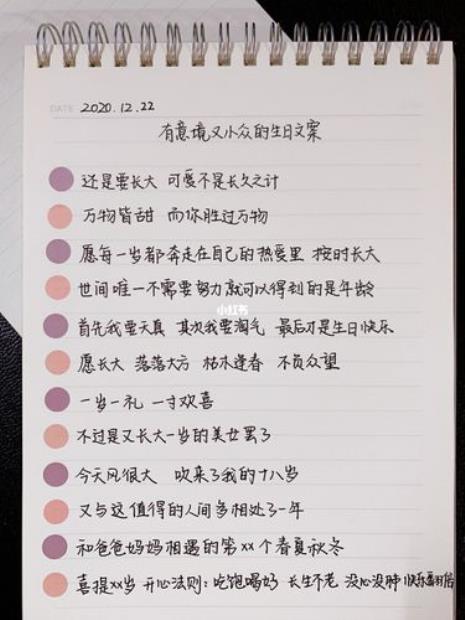 DATE 2020.12.22
有意境又小众的生日文案
还是要长大 可爱不是长久之计
万物皆甜 而你胜过万物
愿每一岁都奔走在自己的热爱里 按时长大
世间唯一不需要努力就可以得到的是年龄
小红书
首先我要天真 其次我要淘气 最后才是生日快乐
愿长大 落落大方 枯木逢春 不负众望
一岁一礼 一寸欢喜
不过是又长大一岁的美女罢了
今天风很大 吹来了我的十八岁
又与这值得的人间多相处了一年
和爸爸妈妈相遇的第xx个春夏秋冬
喜提xx岁 开心法则：吃饱喝好 长生不老 没心没肺 快乐翻倍